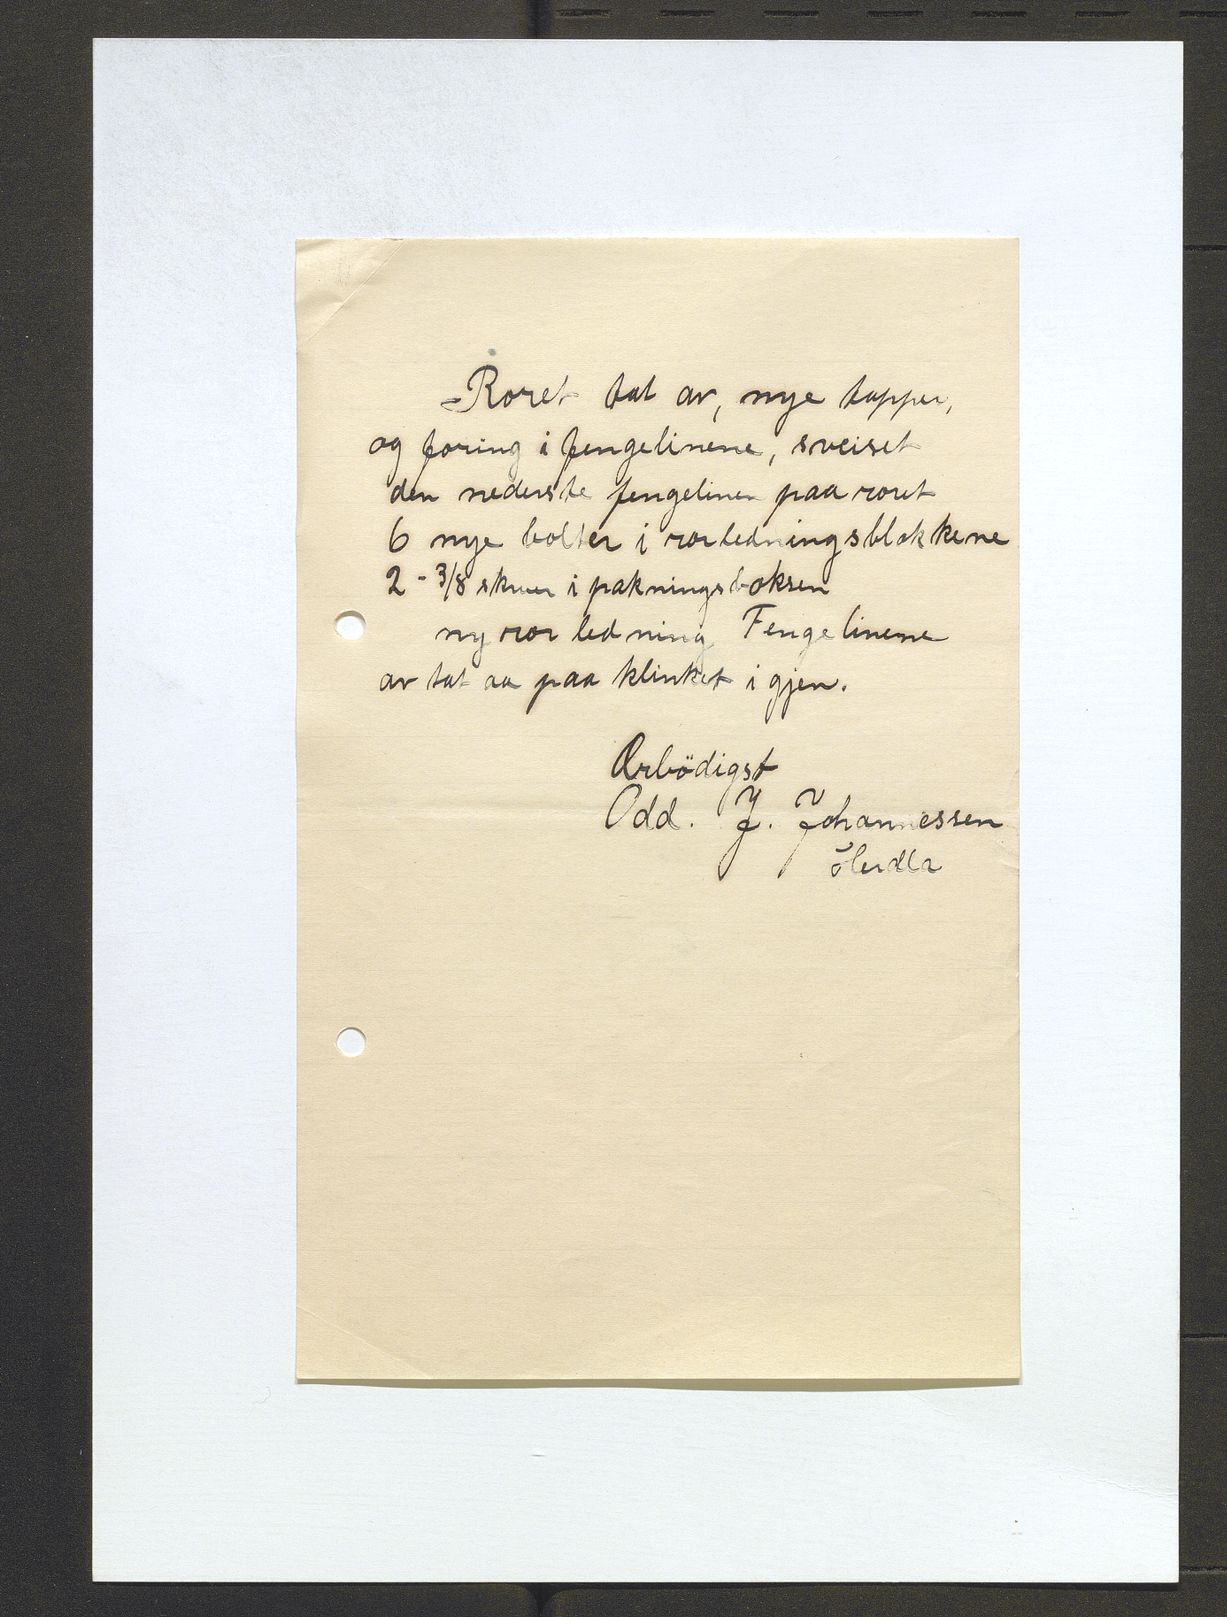 Roret tat av, nye tapper,
og foring i fengelinene, sveiset
den nederste fengelinen paa roret
6 nye bolter i rorledningsblokkene
2 - 3/8 skruer i pakningsboksen
ny ror ledning Fengelinene
av tat aa paa klinket i gjen.
Ærbödigst
Odd. J. Johannessen
Herdla